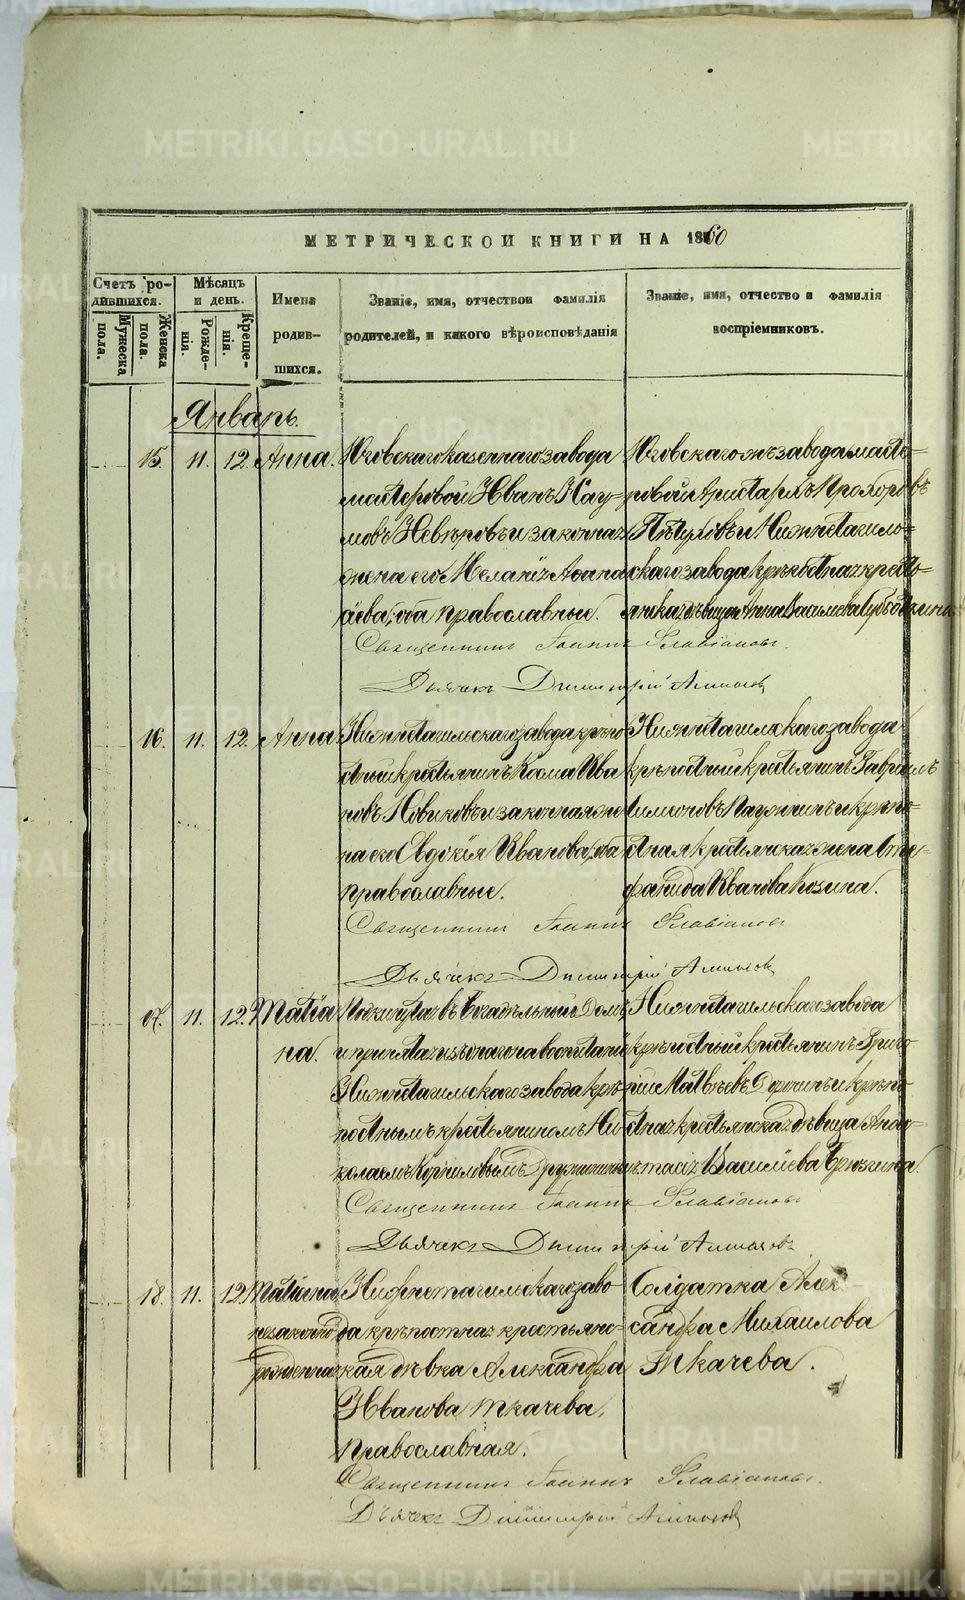 METRIKI.GASO-URAL.RU
МЕТРИЧЕСКОЙ КНИГИ НА 1860
Счетъ родившихся.
Мужеска пола.
Женска пола.
Мѣсяцъ и день.
Рожденія.
Крещенія.
Имена родившихся.
Званіе, имя, отчество и фамилія
родителей, и какого вѣроисповѣданія
Званіе, имя, отчество и фамилія
воспріемниковъ.
Январь.
15. 11. 12. Анна.
Юговскаго казеннаго завода
мастеровой Иванъ Нау-
мовъ Невѣровъ и законная
жена его Меланія Аѳана
сіева, оба православные.
Юговскаго жъ завода масте-
ровой Аристархъ Прохоровъ
Пѣтуховъ и Нижнетагиль-
скаго завода крѣпостная кресть-
янская дѣвица Анна
Священникъ Іоаннъ Славіановъ.
Дьячекъ Димитрій
16. 11. 12. Анна
Нижнетагильскаго завода крѣпо
стный крестьянинъ Косма Ива
новъ Новиковъ и законная же
на его Евдокія Иванова, оба
православные.
Нижнетагильскаго завода
крѣпостный крестьянинъ Гавріилъ
и крѣпо
стная крестьянская жена Сте-
фанида Иванова Козина.
Священникъ Іоаннъ Славіановъ
Дьячекъ Димитрій
17. 11. 12. Татіа
на.
Подкинута въ Богадѣльный Домъ
и принята изъ онаго на воспитаніе
Нижнетагильскаго завода крѣ
постнымъ крестьяниномъ Ни
колаемъ Корниловымъ
Нижнетагильскаго завода
крѣпостный крестьянинъ Григо
рій Матвѣевъ и крѣпо
стная крестьянская дѣвица Анас
тасія Васильева
Священникъ Іоаннъ Славіановъ
Дьячекъ Димитрій
18. 11. 12. Татіана
незаконно
рожденная
Нижнетагильскаго заво
да крѣпостная крестьянс-
кая дѣвка Александра
Иванова Ткачева,
православная.
Солдатка Алек-
сандра Михаилова
Ткачева.
Священникъ Іоаннъ Славіановъ.
Дьячекъ Димитрій